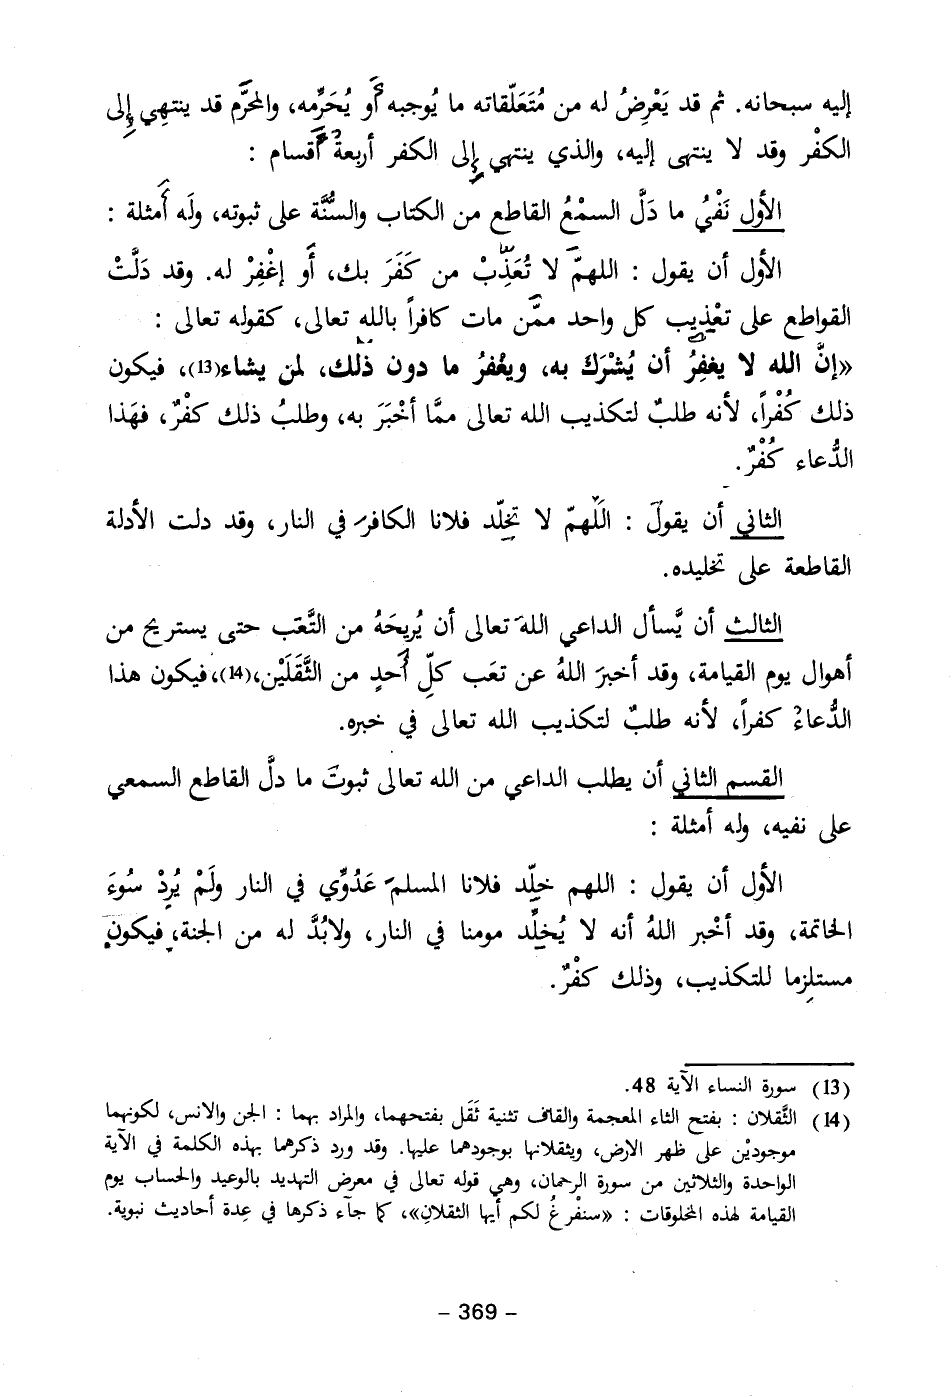 إليه سبحانه. ثم قد يَعْرِضُ له من مُتَعَلّقاته ما يُوجبه أو يُحَرِّمه، والمحَرَّم قد ينتهِي إِلى
الكفْر وقد لا ينتهى إليه، والذي ينتهي إِلى الكفر أربعةُ أقسام :
الأول نَفْيُ ما دَلَّ السمْعُ القاطع من الكتاب والسُّنَّة على ثبوته، ولَه أمثلة :
الأول أن يقول : اللهمّ لا تُعَذِّبْ من كَفَرَ بك، أَو إغْفِرْ له. وقد دَلَّتْ
القواطع على تعْذِيب كل واحد ممَّن مات كافراً بالله تعالى، كقوله تعالى :
«إنَّ الله لا يغفِرُ أن يُشْرَكَ به، ويغْفرُ ما دون ذلك، لمن يشاء(13)، فيكون
ذلك كُفْراً، لأنه طلبٌ لتكذيب الله تعالى ممَّا أخْبَرَ به، وطلبُ ذلك كفْرٌ، فهَذا
الدُّعاء كُفْرٌ.
الثاني أن يقولَ : اللّهمّ لا تخِلّد فلانا الكافر في النار، وقد دلت الأدلة
القاطعة على تخليده.
الثالث أن يَّسأل الداعي اللهَ تعالى أن يُرِيحَهُ من التَّعَب حتى يستريح من
أهوال يوم القيامة، وقد أخبرَ اللهُ عن تعَب كلِّ أَحدٍ من الثَّقَلَيْن،(14)، فيكون هذا
الدُّعاءُ كفراً، لأنه طلبٌ لتكذيب الله تعالى في خبره.
القسم الثاني أن يطلب الداعي من الله تعالى ثبوتَ ما دلَّ القاطع السمعي
على نفيه، وله أمثلة :
الأول أن يقول : اللهم خلِّد فلانا المسلمَ عَدُوِّي في النار ولَمْ يُرِدْ سُوءَ
الخاتمة، وقد أخْبر اللهُ أنه لا يُخلِّد مومنا في النار، ولابُدَّ له من الجنة، فيكون
مستلزِما للتكذيب، وذلك كفْرٌ.
(13) سورة النساء الآية 48.
(14) الثَّقلان : بفتح الثاء المعجمة والقاف تثنية ثَقَل بفتحهما، والمراد بهما : الجن والانس، لكونهما
موجوديْن على ظهر الارض، ويثقلانها بوجودهما عليها. وقد ورد ذكرهما بهذه الكلمة في الآية
الواحدة والثلاثين من سورة الرحمان، وهي قوله تعالى في معرض التهديد بالوعيد والحساب يوم
القيامة لهذه المخلوقات : «سنفْرغُ لكم أيها الثقلانِ»، كما جآء ذكرها في عِدة أحاديث نبوية.
- 369 -